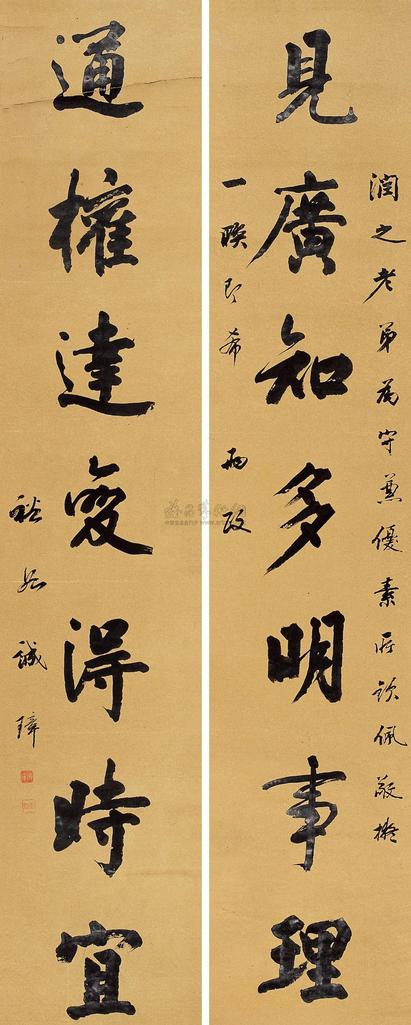 潤之老弟為守兼優素所欽佩敬擬
見廣知多明事理
一聯即希
政
通權達變得時宜
誠璋